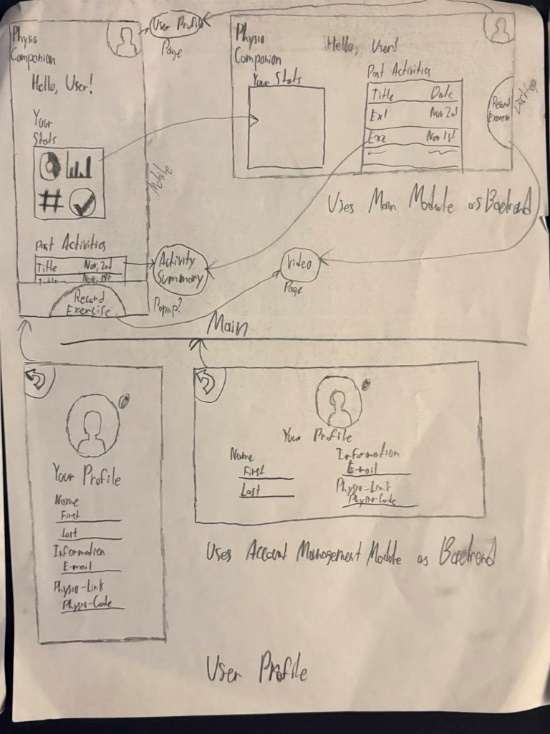 Physio
Companion
Hello, User!
Your
Stats
#
Past Activities
Title Nov, 2nd
Nov. 1st
Record
Exercise
User Profile
Page
Mobile
Activity
Summary
Popup?
Video
Page
Physio
Companion
Hello, User!
Your Stats
Past Activities
Title Date
Ex1 Nov 2nd
Ex2 Nov 1st
Record
Exercise
Desktop
Uses Main Module as Backend
Main
Your Profile
Name
First
Last
Information
E-mail
Physio-Link
Physio-Code
Your Profile
Name
First
Last
Information
E-mail
Physio-Link
Physio-Code
Uses Account Management Module as Backend
User Profile